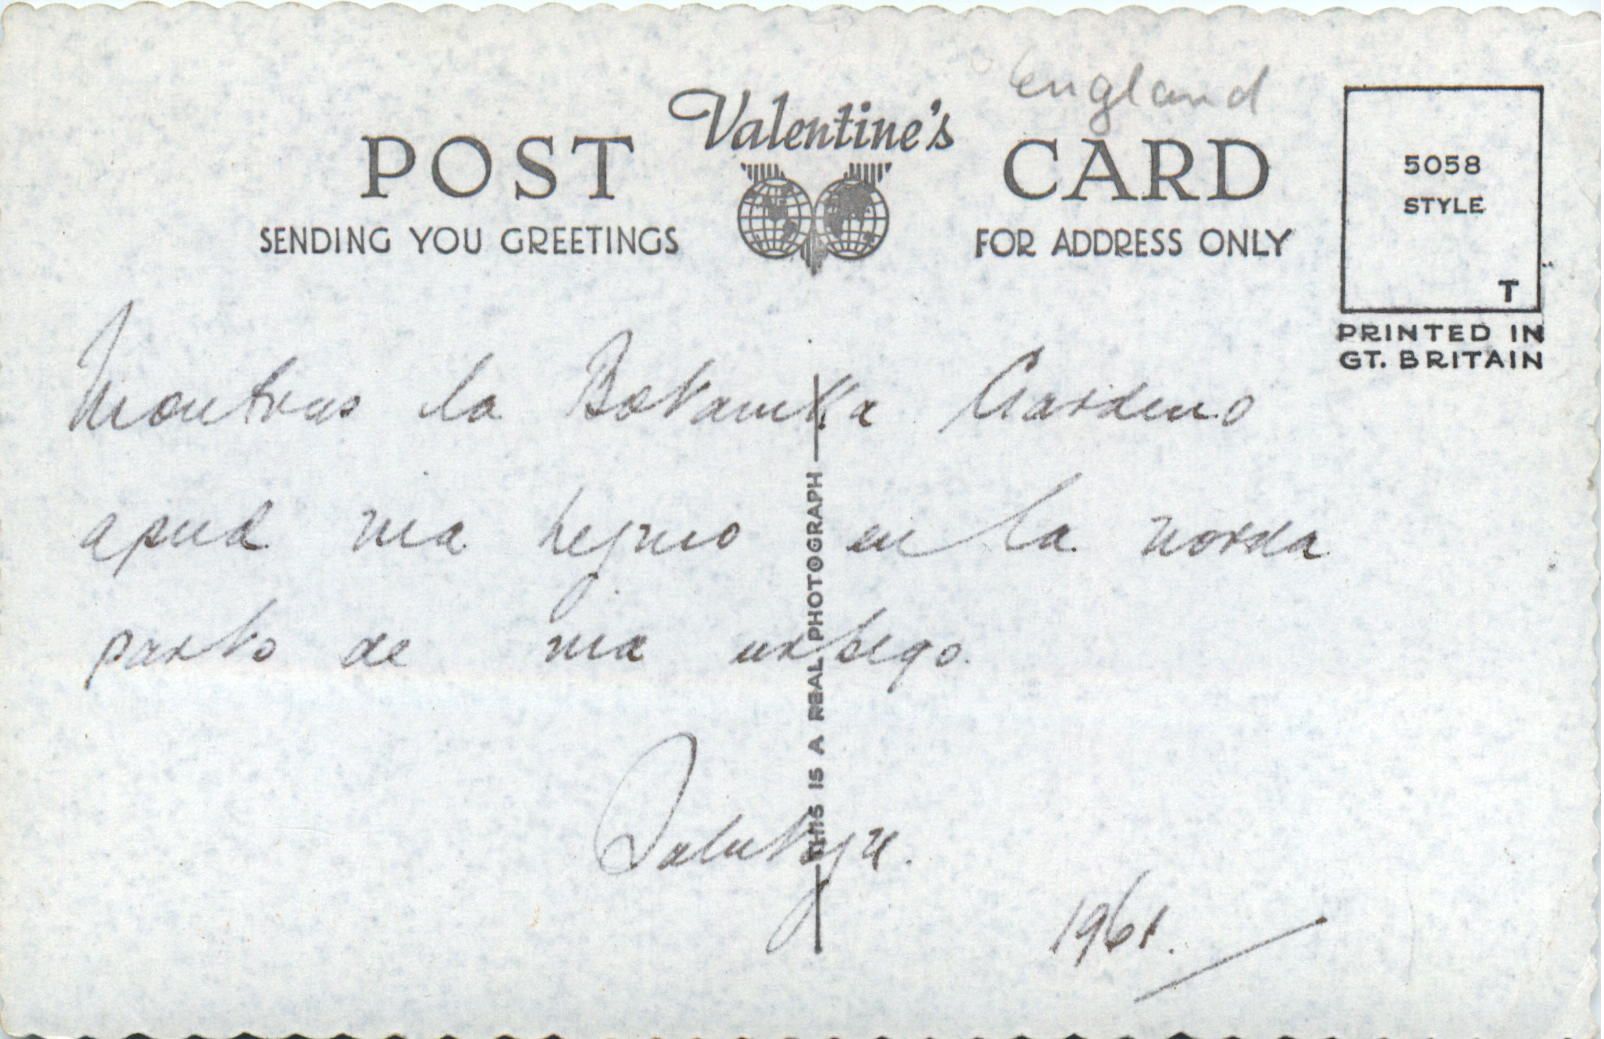 England
Valentine's
POST CARD
SENDING YOU GREETINGS
FOR ADDRESS ONLY
5058
STYLE
T
PRINTED IN
GT. BRITAIN
Montras la Botanika Gardeno
apud mia hejmo en la norda
parto de mia urbego.
THIS IS A REAL PHOTOGRAPH
1961.